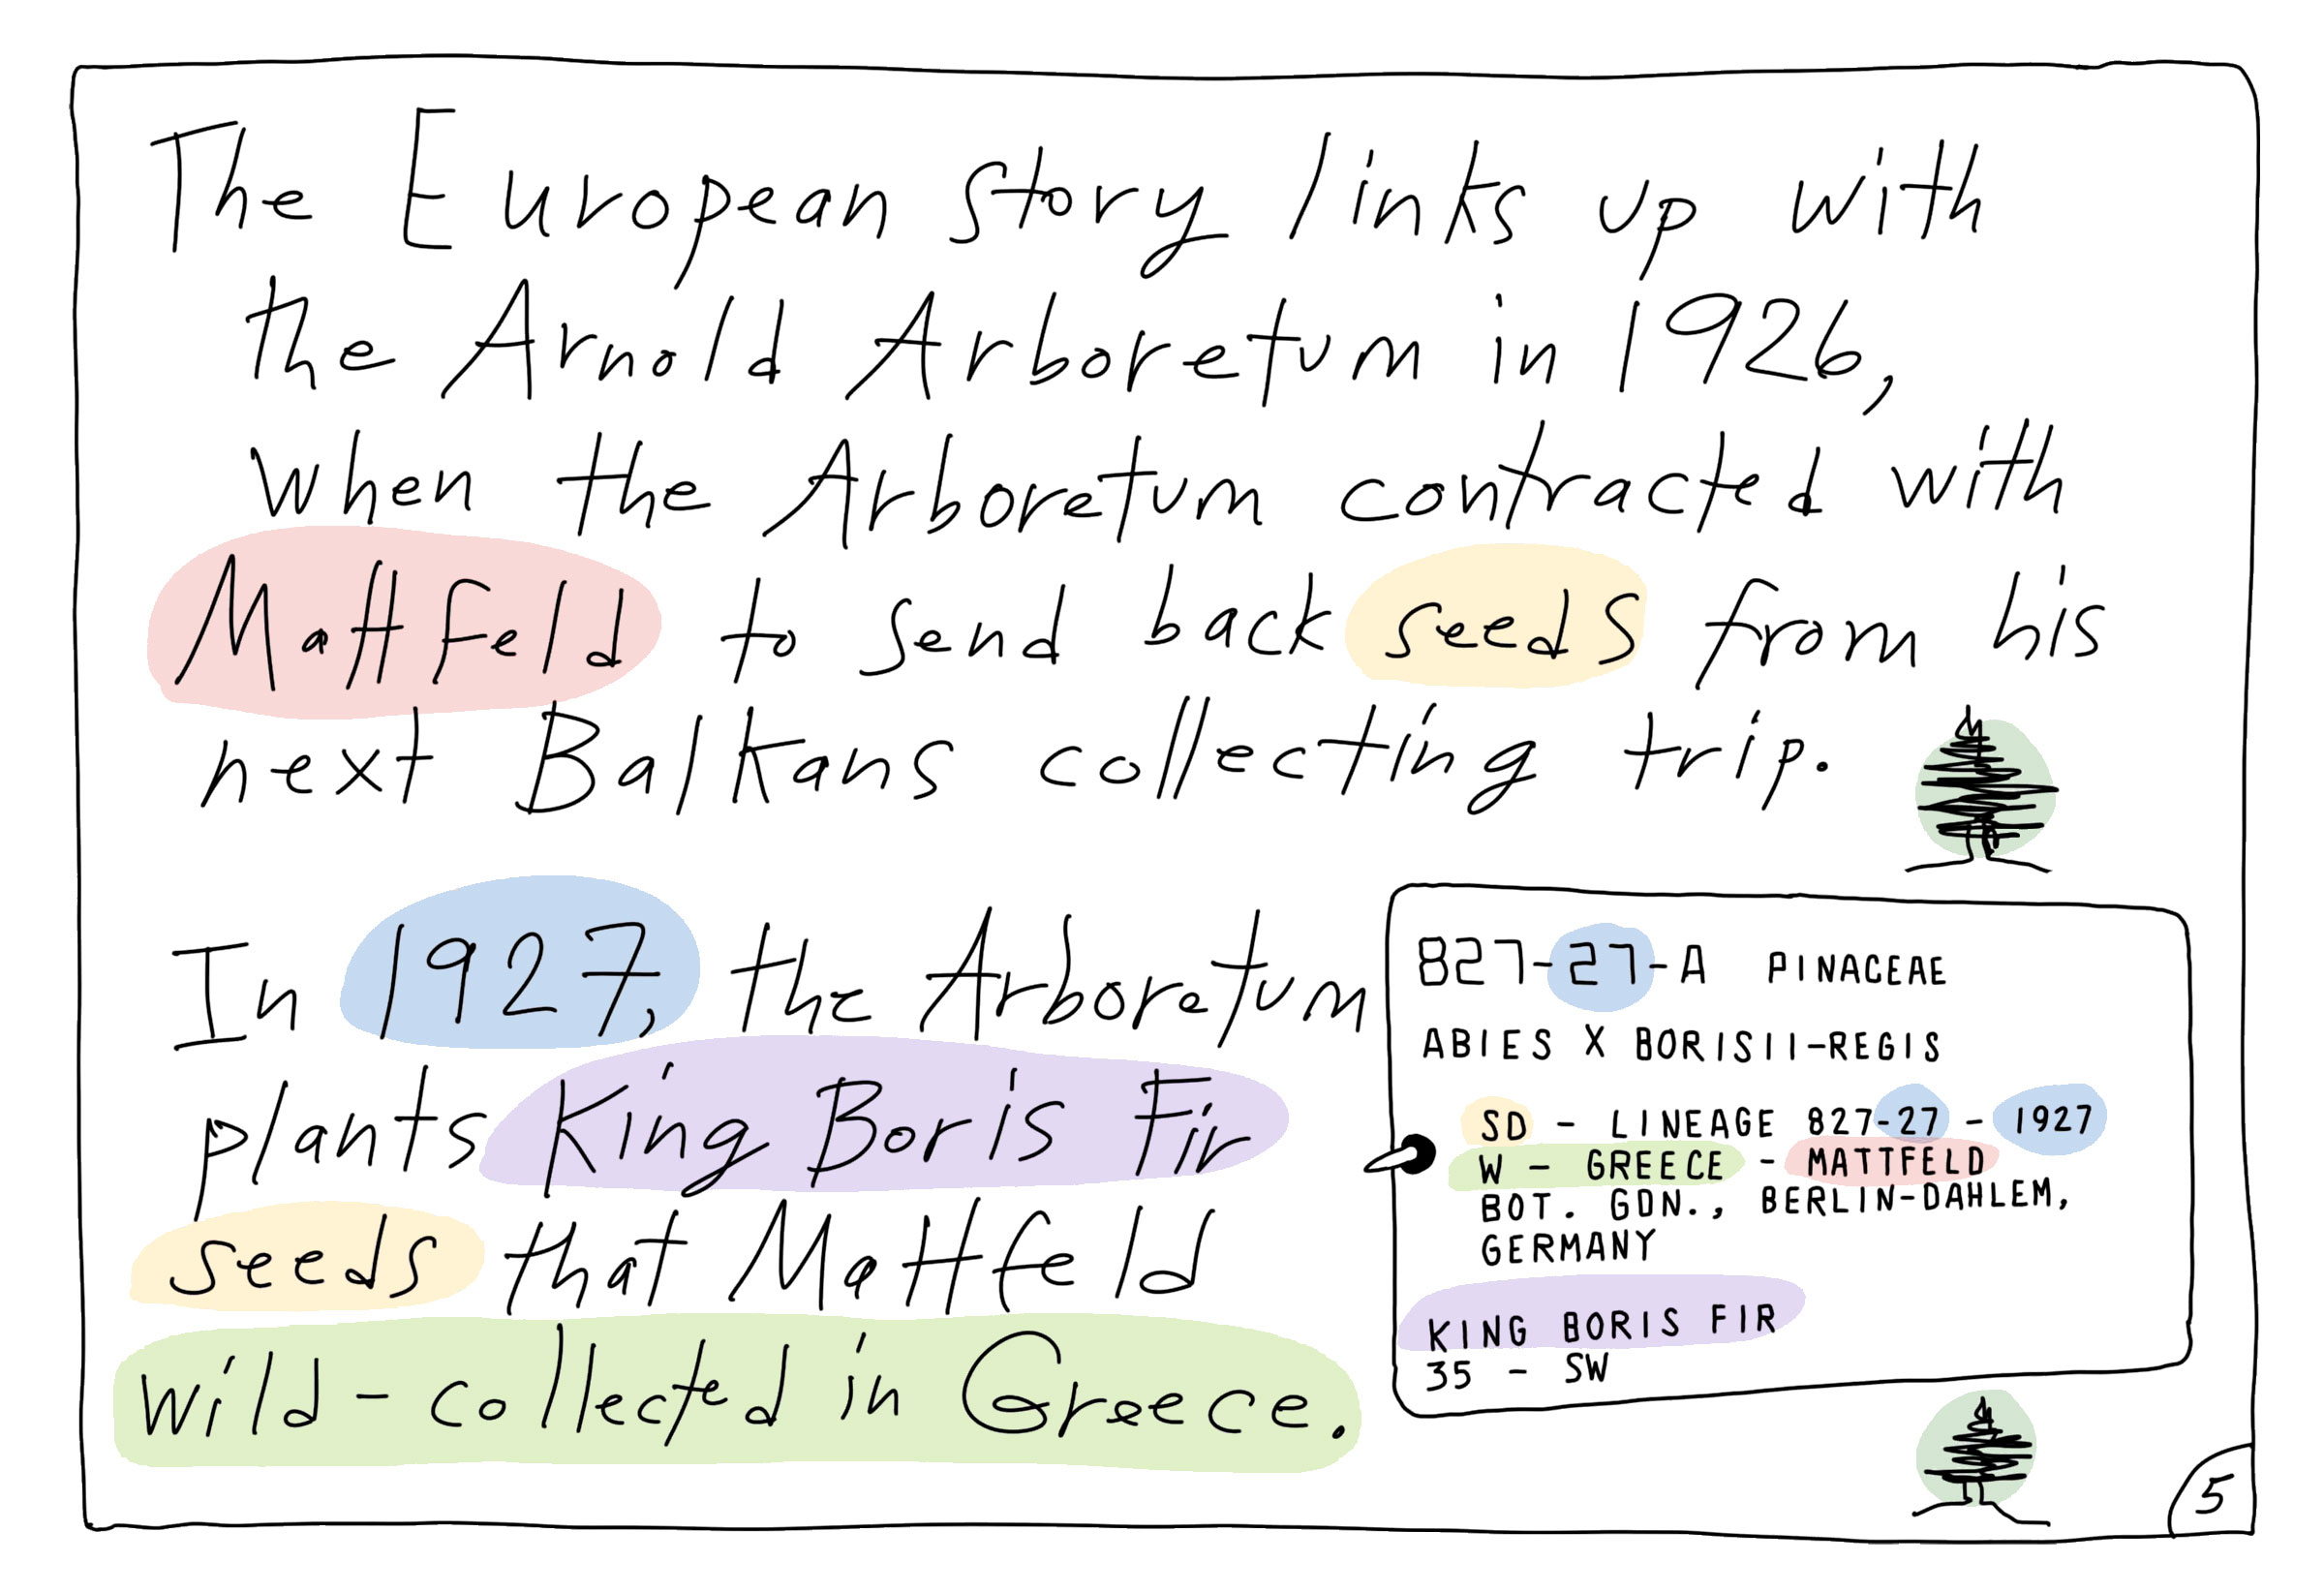 The European story links up with
the Arnold Arboretum in 1926,
when the Arboretum contracted with
Mattfeld to send back seeds from his
next Balkans collecting trip.
In 1927, the Arboretum
plants King Boris Fir
seeds that Mattfeld
wild-collected in Greece.
827-27-A PINACEAE
ABIES X BORISII-REGIS
SD - LINEAGE 827-27 - 1927
W - GREECE - MATTFELD
BOT. GDN., BERLIN-DAHLEM,
GERMANY
KING BORIS FIR
35 - SW
5